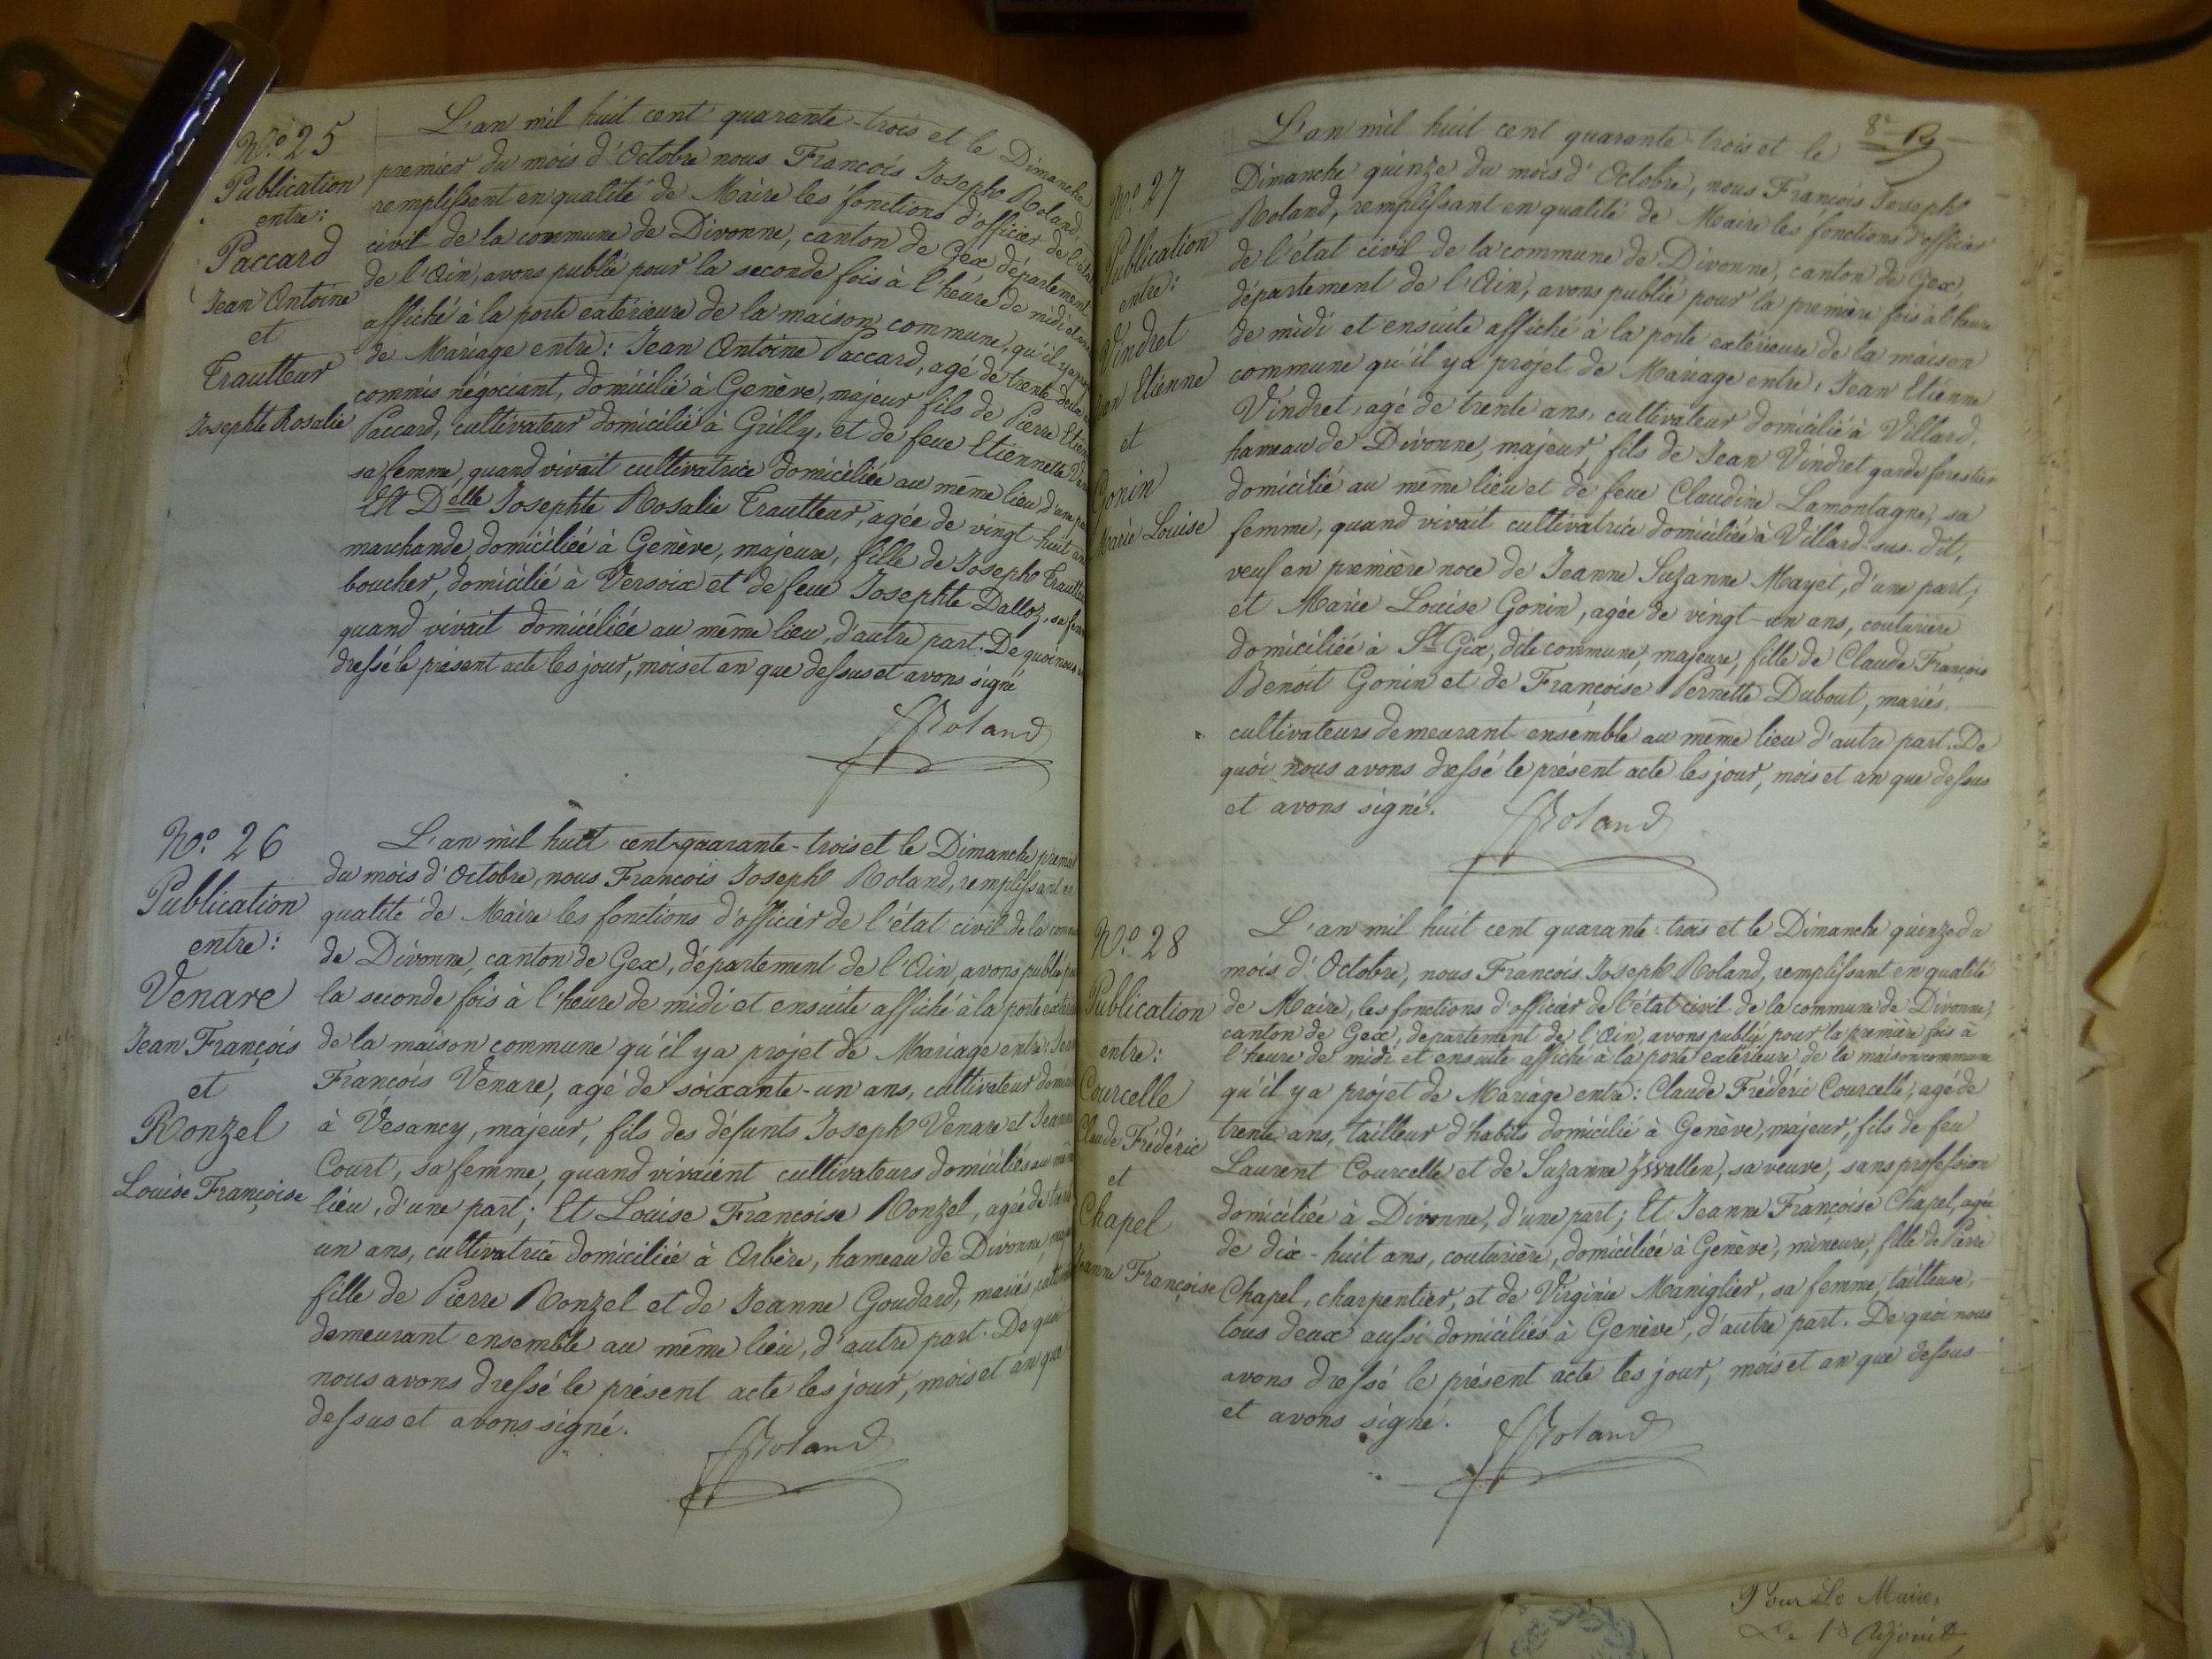 N.º 25
Publication
entre:
Paccard
Jean Antoine
et
Trautteur
Josephte Rosalie
L'an mil huit cent quarante-trois et le Dimanche
premier du mois d'Octobre nous François Joseph Roland,
remplissant en qualité de Maire les fonctions d'officier de l'état
civil de la commune de Divonne, canton de Gex département
de l'Ain, avons publié pour la seconde fois à l'heure de midi et
affiché à la porte extérieure de la maison commune, qu'il y a
de Mariage entre: Jean Antoine Paccard, agé de trente-deux
commis négociant, domicilié à Genève, majeur fils de Pierre
Paccard, cultivateur domicilié à Grilly, et de feue Etiennette
sa femme, quand vivait cultivatrice domiciliée au même lieu, d'une
Et Delle Josephte Rosalie Trautteur, agée de vingt-huit ans
marchande, domiciliée à Genève, majeure, fille de Joseph Trautteur
boucher, domicilié à Versoix et de feue Josephte Dalloz, sa
quand vivait domiciliée au même lieu, d'autre part. De quoi nous
dressé le présent acte les jour, mois et an que dessus et avons signé
Roland
N.º 26
Publication
entre:
Venare
Jean François
et
Ronzel
Louise Françoise
L'an mil huit cent quarante-trois et le Dimanche premier
du mois d'Octobre, nous François Joseph Roland, remplissant en
qualité de Maire les fonctions d'officier de l'état civil de la
de Divonne, canton de Gex, département de l'Ain, avons publié
la seconde fois à l'heure de midi et ensuite affiché à la porte
de la maison commune qu'il y a projet de Mariage entre:
François Venare, agé de soixante-un ans, cultivateur
à Vésancy, majeur, fils des défunts Joseph Venare et Jeanne
Court, sa femme, quand vivaient cultivateurs domiciliés au
lieu, d'une part; Et Louise Françoise Ronzel, agée de
un ans, cultivatrice domiciliée à Arbère, hameau de Divonne,
fille de Pierre Ronzel et de Jeanne Goudard, mariés,
demeurant ensemble au même lieu, d'autre part. De quoi
nous avons dressé le présent acte les jour, mois et an que
dessus et avons signé.
Roland
N.º 27
Publication
entre:
Vindret
Etienne
et
Gonin
Marie Louise
L'an mil huit cent quarante-trois et le
Dimanche quinze du mois d'Octobre, nous François Joseph
Roland, remplissant en qualité de Maire les fonctions d'officier
de l'état civil de la commune de Divonne, canton de Gex,
département de l'Ain, avons publié pour la première fois à l'heure
de midi et ensuite affiché à la porte extérieure de la maison
commune qu'il y a projet de Mariage entre: Jean Etienne
Vindret, agé de trente ans, cultivateur domicilié à Villard,
hameau de Divonne, majeur, fils de Jean Vindret garde forestier
domicilié au même lieu et de feue Claudine Lamontagne, sa
femme, quand vivait cultivatrice domiciliée à Villard-sus-dit,
veuf en première noce de Jeanne Suzanne Mayet, d'une part;
et Marie Louise Gonin, agée de vingt-un ans, couturière
domiciliée à St Gix, dite commune, majeure, fille de Claude François
Benoit Gonin et de Françoise Pernette Dubout, mariés,
cultivateurs demeurant ensemble au même lieu d'autre part. De
quoi nous avons dressé le présent acte les jour, mois et an que dessus
et avons signé.
Roland
N.º 28
Publication
entre:
Courcelle
Claude Frédéric
et
Chapel
Jeanne Françoise
L'an mil huit cent quarante-trois et le Dimanche quinze du
mois d'Octobre, nous François Joseph Roland, remplissant en qualité
de Maire, les fonctions d'officier de l'état civil de la commune de Divonne,
canton de Gex, département de l'Ain, avons publié pour la première fois à
l'heure de midi et ensuite affiché à la porte extérieure de la maison commune
qu'il y a projet de Mariage entre: Claude Frédéric Courcelle, agé de
trente ans, tailleur d'habits domicilié à Genève, majeur, fils de feu
Laurent Courcelle et de Suzanne Zwallen, sa veuve, sans profession
domiciliée à Divonne, d'une part; Et Jeanne Françoise Chapel, agée
de dix-huit ans, couturière, domiciliée à Genève, mineure, fille de Pierre
Chapel, charpentier, et de Virginie Maniglier, sa femme, tailleuse,
tous deux aussi domiciliés à Genève, d'autre part. De quoi nous
avons dressé le présent acte les jour, mois et an que dessus
et avons signé.
Roland
Pour Le Maire,